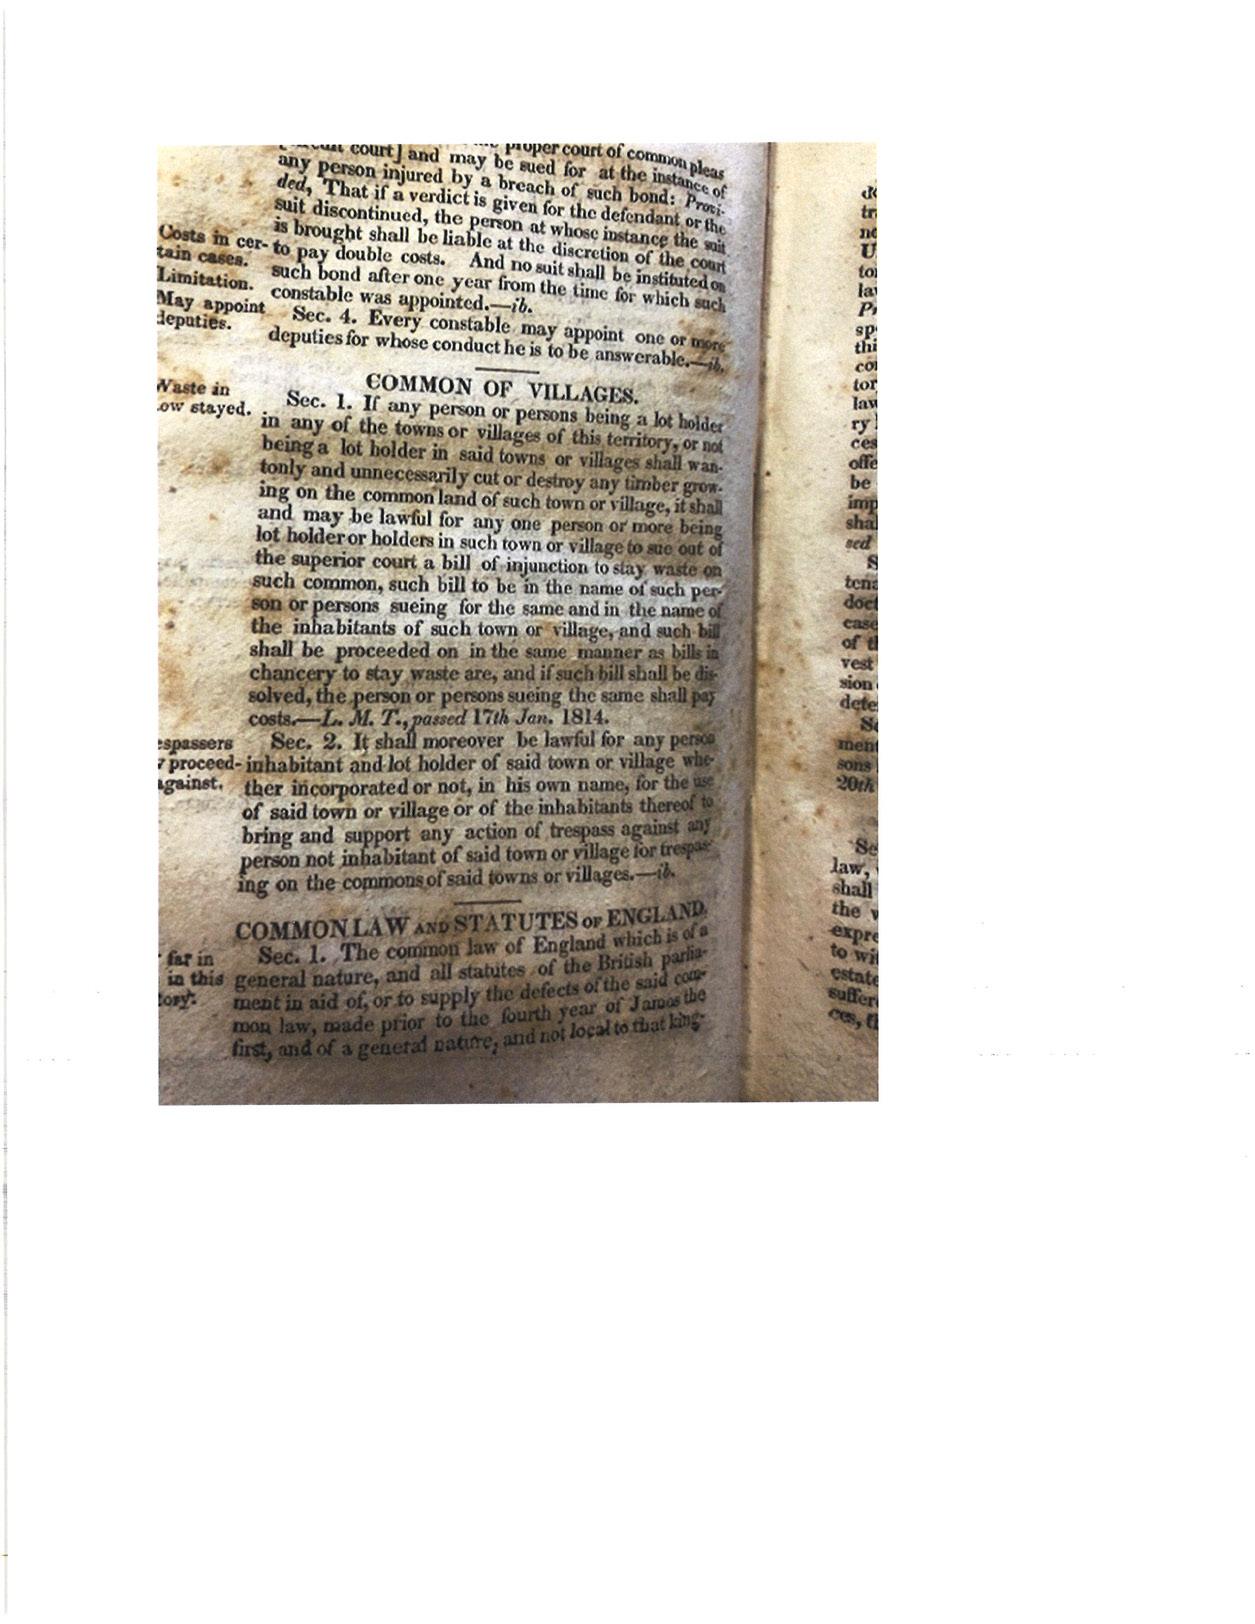 court] and may be sued for at the instance of
any person injured by a breach of such bond: Provi-
ded, That if a verdict is given for the defendant or the
suit discontinued, the person at whose instance the suit
is brought shall be liable at the discretion of the court
Costs in cer- to pay double costs. And no suit shall be instituted on
tain cases. such bond after one year from the time for which such
Limitation. constable was appointed.—ib.
May appoint Sec. 4. Every constable may appoint one or more
deputies. deputies for whose conduct he is to be answerable.—ib.
COMMON OF VILLAGES.
Waste in Sec. 1. If any person or persons being a lot holder
ow stayed. in any of the towns or villages of this territory, or not
being a lot holder in said towns or villages shall wan-
tonly and unnecessarily cut or destroy any timber grow-
ing on the common land of such town or village, it shall
and may be lawful for any one person or more being
lot holder or holders in such town or village to sue out of
the superior court a bill of injunction to stay waste on
such common, such bill to be in the name of such per-
son or persons sueing for the same and in the name of
the inhabitants of such town or village, and such bill
shall be proceeded on in the same manner as bills in
chancery to stay waste are, and if such bill shall be dis-
solved, the person or persons sueing the same shall pay
costs.—L. M. T., passed 17th Jan. 1814.
espassers Sec. 2. It shall moreover be lawful for any person
proceed- inhabitant and lot holder of said town or village whe-
against. ther incorporated or not, in his own name, for the use
of said town or village or of the inhabitants thereof to
bring and support any action of trespass against any
person not inhabitant of said town or village for trespas-
ing on the commons of said towns or villages.—ib.
COMMON LAW AND STATUTES OF ENGLAND.
far in Sec. 1. The common law of England which is of a
in this general nature, and all statutes of the British parlia-
tory. ment in aid of, or to supply the defects of the said com-
mon law, made prior to the fourth year of James the
first, and of a general nature, and not local to that king-
tor
law
ry
ces
offe
be
imp
shal
sed
S
tena
doct
case
of t
vest
sion
dete
Se
ment
sons
20th
Se
law,
shall
the v
expre
to wit
estate
suffer
ces, th